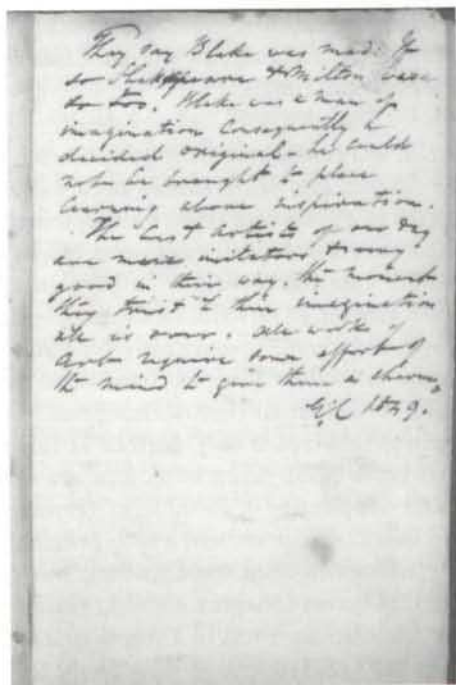 They say Blake was mad: If
so Shakspeare & Milton were
so too. Blake was a man of
imagination Consequently a
decided original - he could
not be brought to place
learning above inspiration.
The best artists of our day
are mere imitators & very
good in their way. the moment
they trust to their imagination
all is over. All works of
art require some effort of
the mind to give them a charm,
1849.